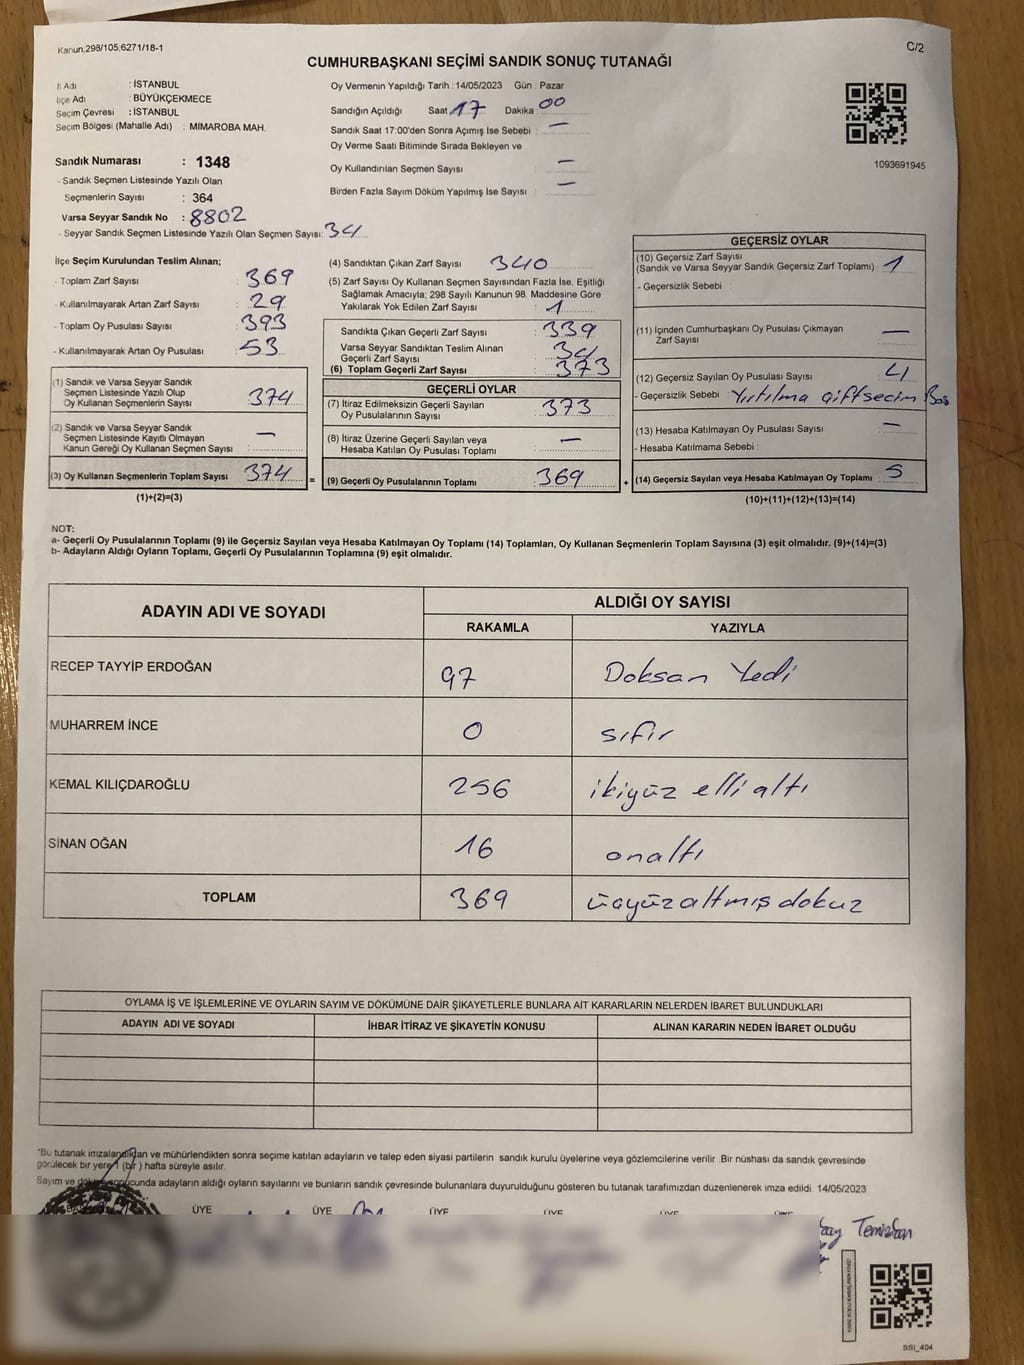 Kanun;298/105;6271/18-1
C/2
CUMHURBAŞKANI SEÇİMİ SANDIK SONUÇ TUTANAĞI
İl Adı : İSTANBUL
İlçe Adı : BÜYÜKÇEKMECE
Seçim Çevresi : İSTANBUL
Seçim Bölgesi (Mahalle Adı) : MİMAROBA MAH.
Sandık Numarası : 1348
- Sandık Seçmen Listesinde Yazılı Olan
Seçmenlerin Sayısı : 364
Varsa Seyyar Sandık No : 8802
- Seyyar Sandık Seçmen Listesinde Yazılı Olan Seçmen Sayısı: 34
Oy Vermenin Yapıldığı Tarih : 14/05/2023 Gün : Pazar
Sandığın Açıldığı Saat 17 Dakika 00
Sandık Saat 17:00'den Sonra Açımış İse Sebebi : —
Oy Verme Saati Bitiminde Sırada Bekleyen ve
Oy Kullandırılan Seçmen Sayısı : —
Birden Fazla Sayım Döküm Yapılmış İse Sayısı : —
1093691945
İlçe Seçim Kurulundan Teslim Alınan;
- Toplam Zarf Sayısı : 369
- Kullanılmayarak Artan Zarf Sayısı : 29
- Toplam Oy Pusulası Sayısı : 393
- Kullanılmayarak Artan Oy Pusulası : 53
(1) Sandık ve Varsa Seyyar Sandık
Seçmen Listesinde Yazılı Olup
Oy Kullanan Seçmenlerin Sayısı : 374
(2) Sandık ve Varsa Seyyar Sandık
Seçmen Listesinde Kayıtlı Olmayan
Kanun Gereği Oy Kullanan Seçmen Sayısı : —
(3) Oy Kullanan Seçmenlerin Toplam Sayısı : 374 =
(1)+(2)=(3)
(4) Sandıktan Çıkan Zarf Sayısı : 340
(5) Zarf Sayısı Oy Kullanan Seçmen Sayısından Fazla İse, Eşitliği
Sağlamak Amacıyla; 298 Sayılı Kanunun 98. Maddesine Göre
Yakılarak Yok Edilen Zarf Sayısı : 1
Sandıkta Çıkan Geçerli Zarf Sayısı : 339
Varsa Seyyar Sandıktan Teslim Alınan
Geçerli Zarf Sayısı : 34
(6) Toplam Geçerli Zarf Sayısı : 373
GEÇERLİ OYLAR
(7) İtiraz Edilmeksizin Geçerli Sayılan
Oy Pusulalarının Sayısı : 373
(8) İtiraz Üzerine Geçerli Sayılan veya
Hesaba Katılan Oy Pusulası Toplamı : —
(9) Geçerli Oy Pusulalarının Toplamı : 369 +
GEÇERSİZ OYLAR
(10) Geçersiz Zarf Sayısı
(Sandık ve Varsa Seyyar Sandık Geçersiz Zarf Toplamı) : 1
- Geçersizlik Sebebi :
(11) İçinden Cumhurbaşkanı Oy Pusulası Çıkmayan
Zarf Sayısı : —
(12) Geçersiz Sayılan Oy Pusulası Sayısı : 4
- Geçersizlik Sebebi : Yırtılma çiftseçim Boş
(13) Hesaba Katılmayan Oy Pusulası Sayısı : —
- Hesaba Katılmama Sebebi :
(14) Geçersiz Sayılan veya Hesaba Katılmayan Oy Toplamı : 5
(10)+(11)+(12)+(13)=(14)
NOT:
a- Geçerli Oy Pusulalarının Toplamı (9) ile Geçersiz Sayılan veya Hesaba Katılmayan Oy Toplamı (14) Toplamları, Oy Kullanan Seçmenlerin Toplam Sayısına (3) eşit olmalıdır. (9)+(14)=(3)
b- Adayların Aldığı Oyların Toplamı, Geçerli Oy Pusulalarının Toplamına (9) eşit olmalıdır.
ADAYIN ADI VE SOYADI
ALDIĞI OY SAYISI
RAKAMLA YAZIYLA
RECEP TAYYİP ERDOĞAN 97 Doksan Yedi
MUHARREM İNCE 0 sıfır
KEMAL KILIÇDAROĞLU 256 ikiyüz elli altı
SİNAN OĞAN 16 onaltı
TOPLAM 369 üçyüzaltmış dokuz
OYLAMA İŞ VE İŞLEMLERİNE VE OYLARIN SAYIM VE DÖKÜMÜNE DAİR ŞİKAYETLERLE BUNLARA AİT KARARLARIN NELERDEN İBARET BULUNDUKLARI
ADAYIN ADI VE SOYADI İHBAR İTİRAZ VE ŞİKAYETİN KONUSU ALINAN KARARIN NEDEN İBARET OLDUĞU
"Bu tutanak imzalandıktan ve mühürlendikten sonra seçime katılan adayların ve talep eden siyasi partilerin sandık kurulu üyelerine veya gözlemcilerine verilir. Bir nüshası da sandık çevresinde
görülecek bir yere 1 (bir) hafta süreyle asılır.
Sayım ve döküm sonucunda adayların aldığı oyların sayılarını ve bunların sandık çevresinde bulunanlara duyurulduğunu gösteren bu tutanak tarafımızdan düzenlenerek imza edildi. 14/05/2023
ÜYE ÜYE ÜYE ÜYE ÜYE ÜYE
SSI_404